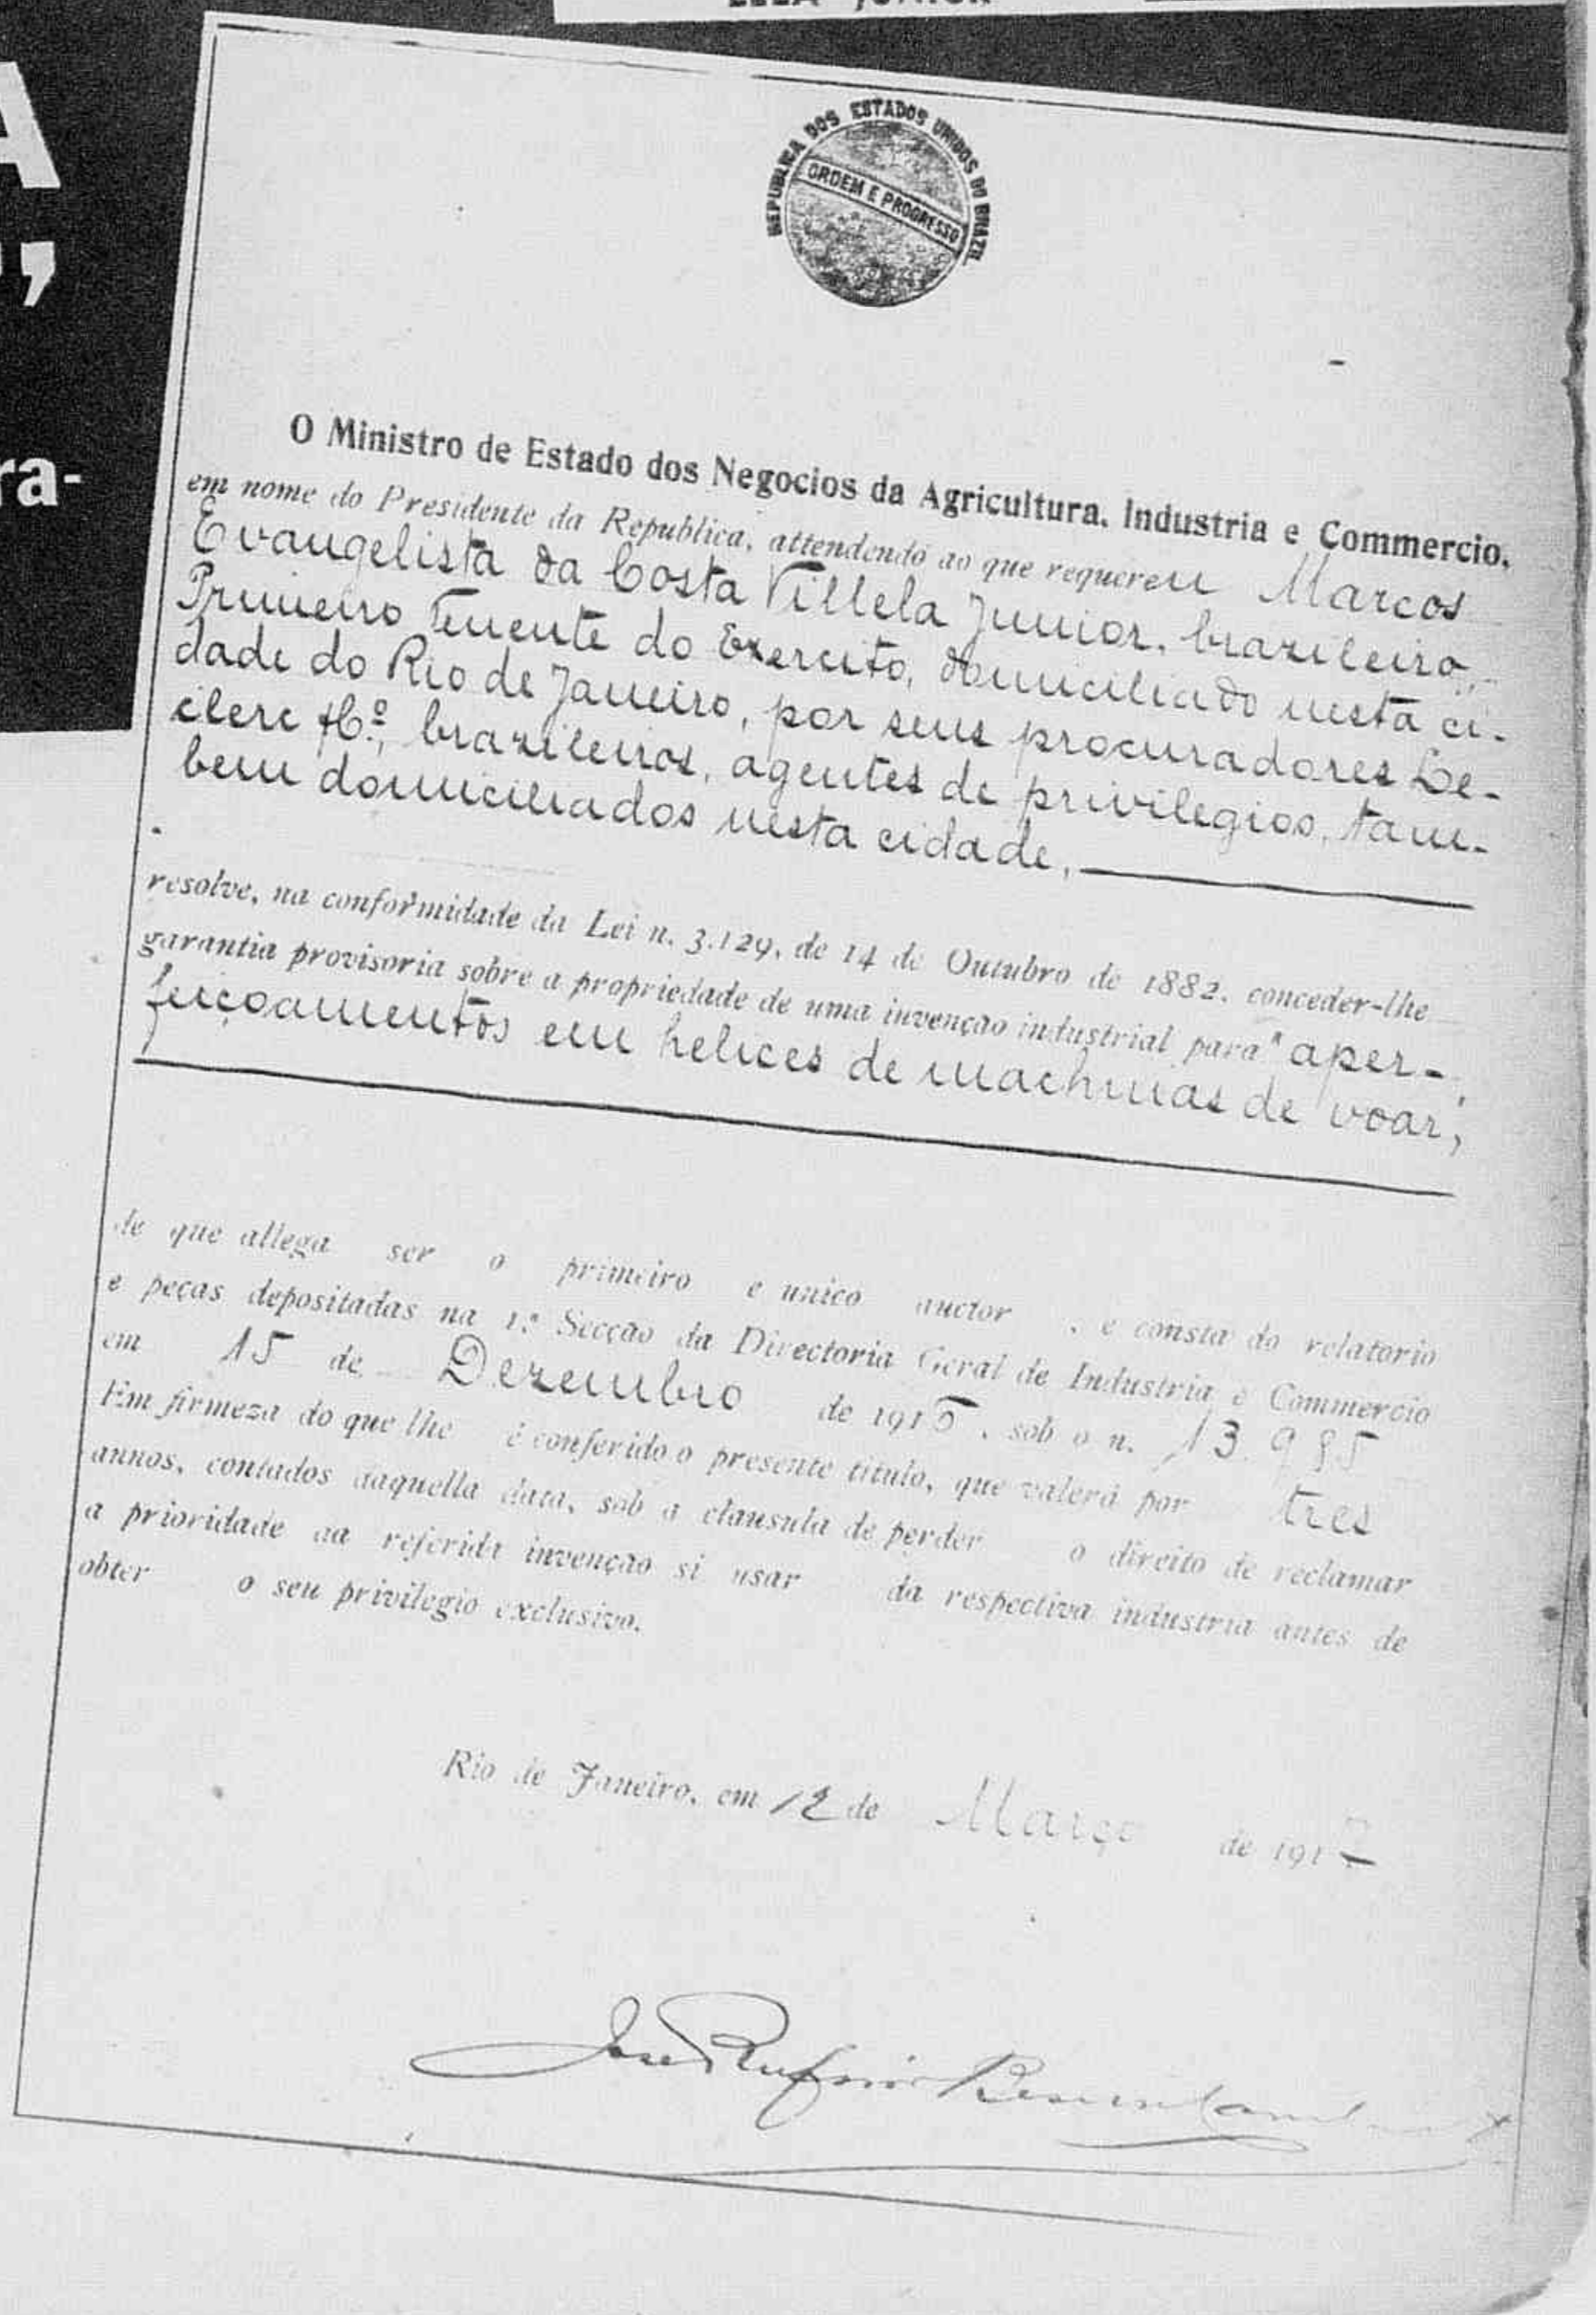 LELA JUNIOR
A
,
ra-
REPUBLICA DOS ESTADOS UNIDOS DO BRAZIL
ORDEM E PROGRESSO
O Ministro de Estado dos Negocios da Agricultura, Industria e Commercio,
em nome do Presidente da Republica, attendendo ao que requereu Marcos
Evangelista da Costa Villela Junior, brazileiro,
Primeiro Tenente do Exercito, domiciliado nesta ci-
dade do Rio de Janeiro, por seus procuradores Le-
clerc & Cº, brazileiros, agentes de privilegios, tam-
bem domiciliados nesta cidade,
resolve, na conformidade da Lei n. 3.129, de 14 de Outubro de 1882, conceder-lhe
garantia provisoria sobre a propriedade de uma invenção industrial para "aper-
feiçoamentos em helices de machinas de voar",
de que allega ser o primeiro e unico auctor, e consta do relatorio
e peças depositadas na 1.ª Secção da Directoria Geral de Industria e Commercio
em 15 de Dezembro de 1916, sob o n. 13.985
Em firmeza do que lhe é conferido o presente titulo, que valerá por tres
annos, contados daquella data, sob a clausula de perder o direito de reclamar
a prioridade da referida invenção si usar da respectiva industria antes de
obter o seu privilegio exclusivo.
Rio de Janeiro, em 12 de Março de 1917
José Rufino